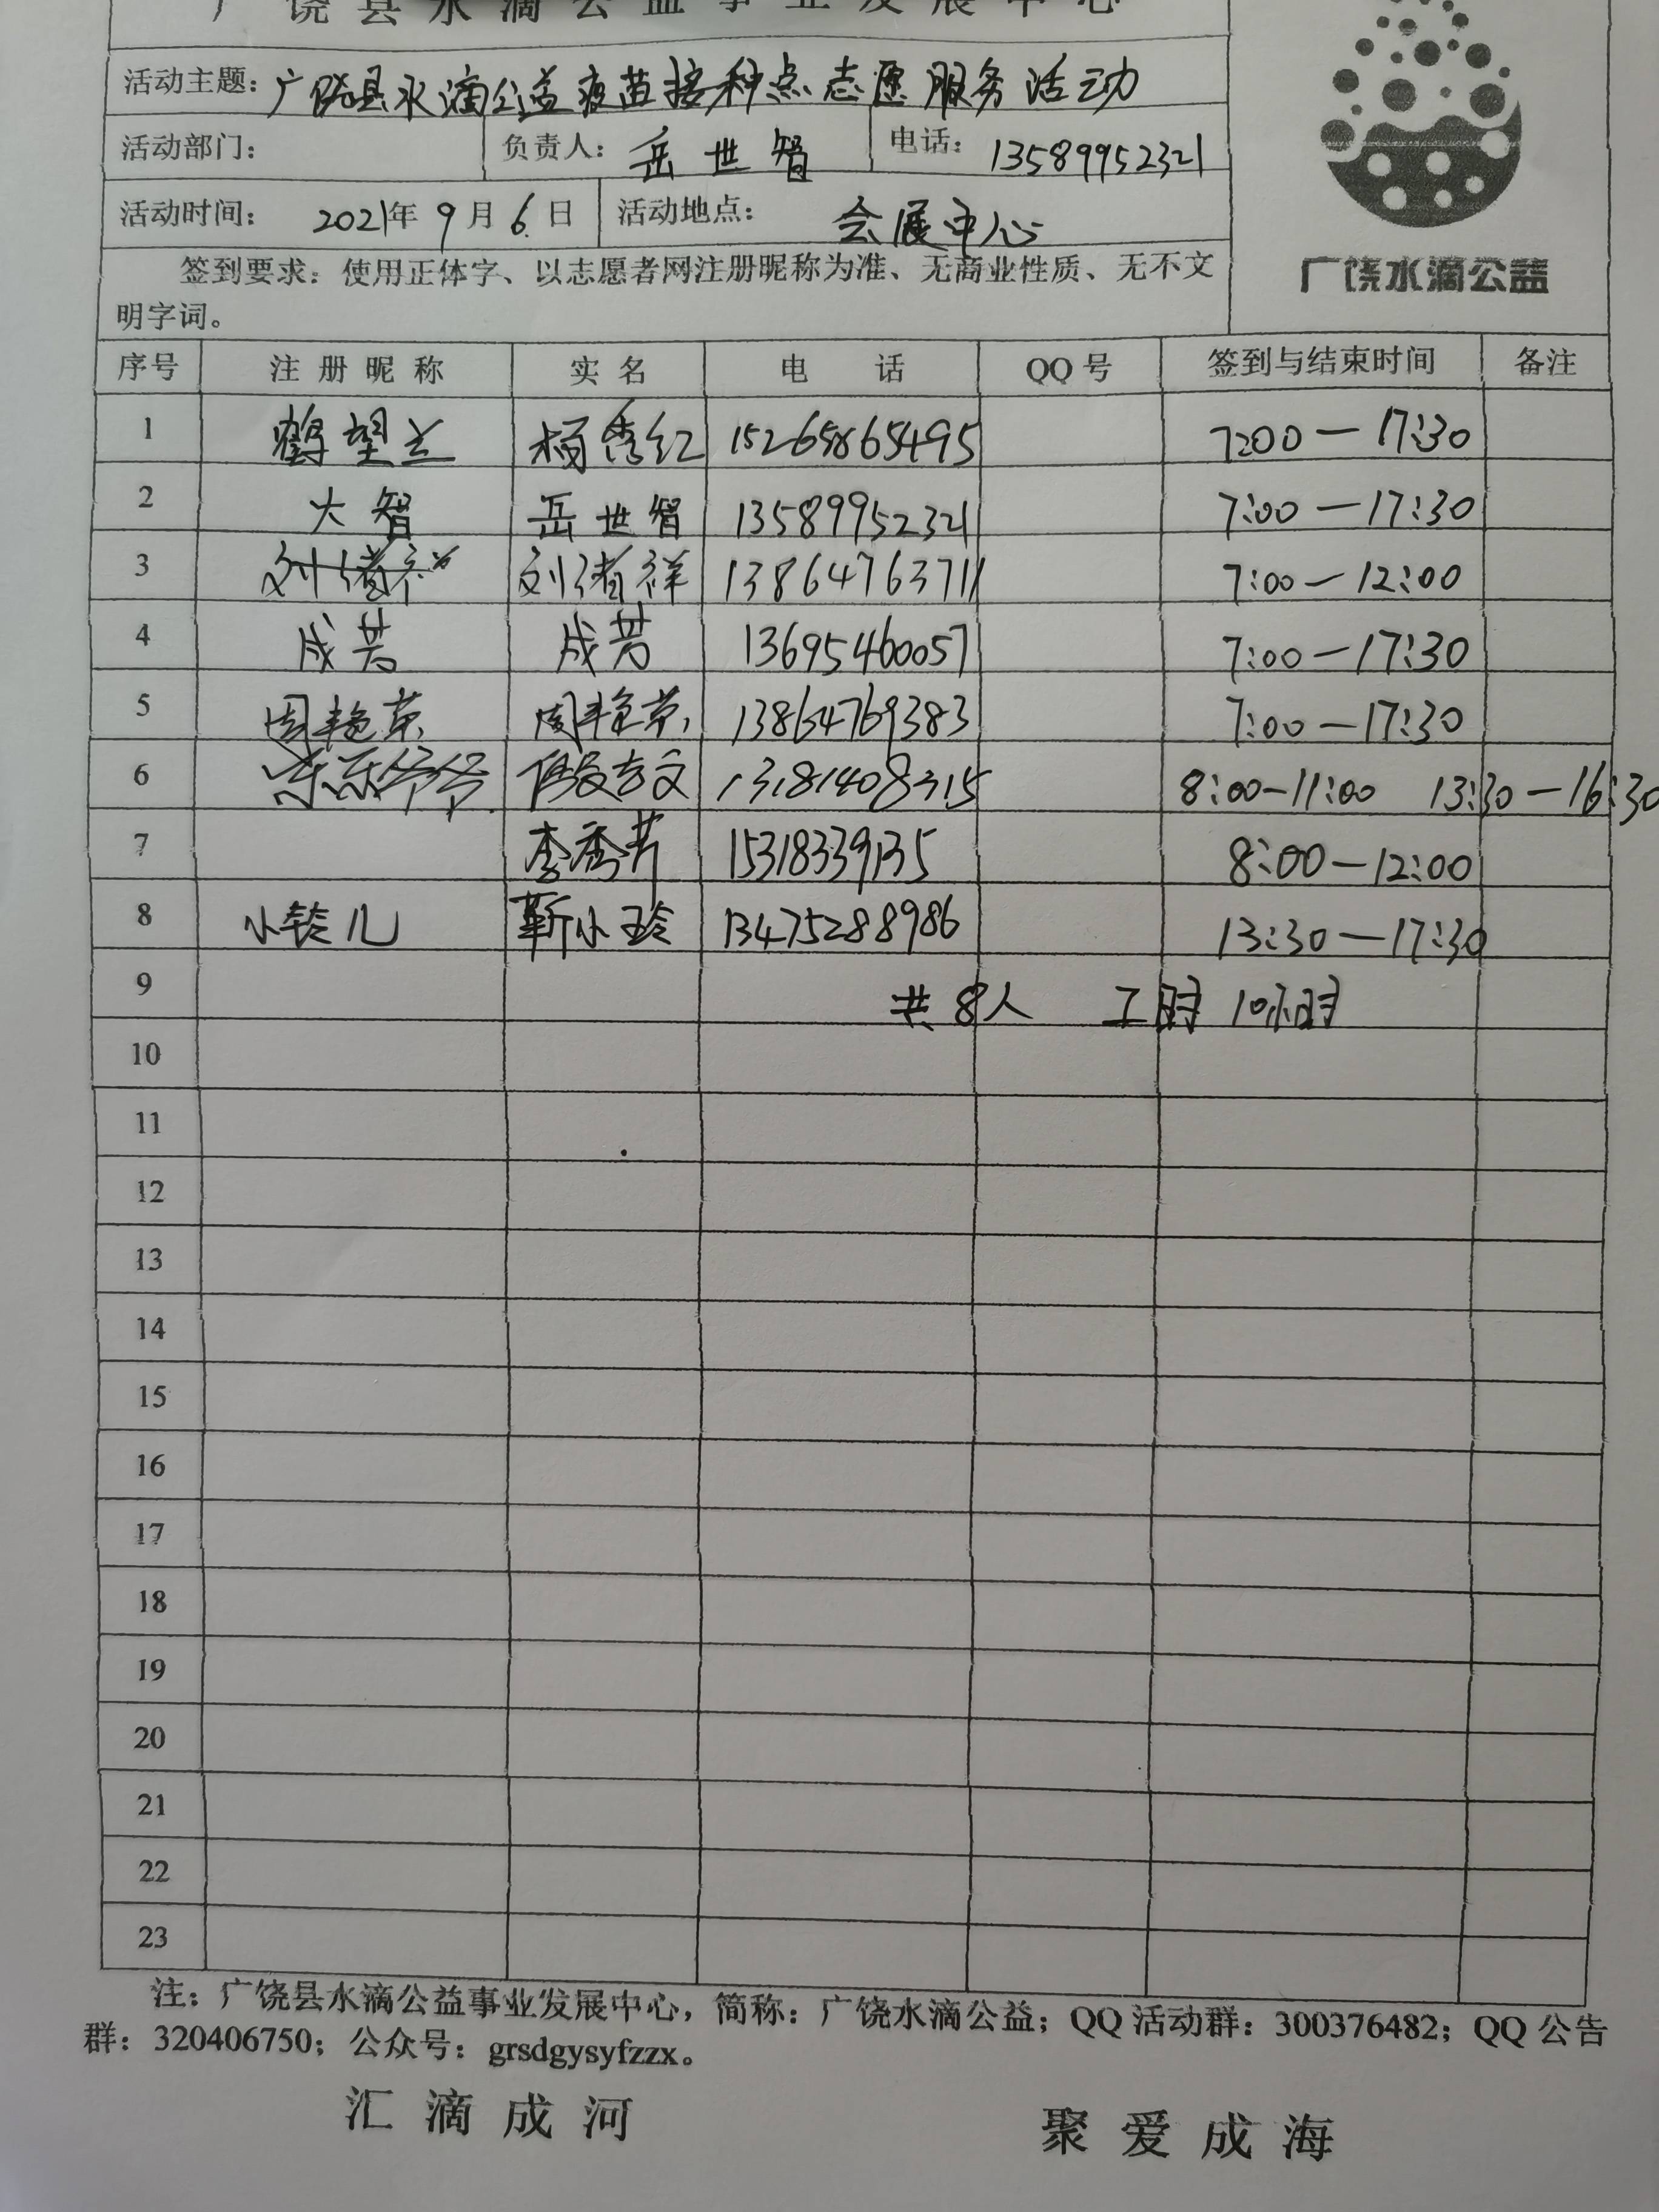 广饶县水滴公益事业发展中心
活动主题：广饶县水滴公益疫苗接种点志愿服务活动
活动部门： 负责人：岳世智 电话：13589952321
活动时间： 2021年9月6日 活动地点： 会展中心
签到要求：使用正体字、以志愿者网注册昵称为准、无商业性质、无不文
明字词。
广饶水滴公益
序号 注册昵称 实名 电话 QQ号 签到与结束时间 备注
1 鹤望兰 杨秀红 15265865495 7:00—17:30
2 大智 岳世智 13589952321 7:00—17:30
3 刘绪祥 刘绪祥 13864763711 7:00—12:00
4 成芳 成芳 13695460057 7:00—17:30
5 周艳英 周艳英 13864769383 7:00—17:30
6 乐乐爷爷 13181408315 8:00—11:00 13:30—16:30
7 李秀芳 15318339135 8:00—12:00
8 小铃儿 靳小玲 13475288986 13:30—17:30
9 共8人 工时 10小时
10
11
12
13
14
15
16
17
18
19
20
21
22
23
注：广饶县水滴公益事业发展中心，简称：广饶水滴公益；QQ活动群：300376482；QQ公告
群：320406750；公众号：grsdgysyfzzx。
汇滴成河 聚爱成海